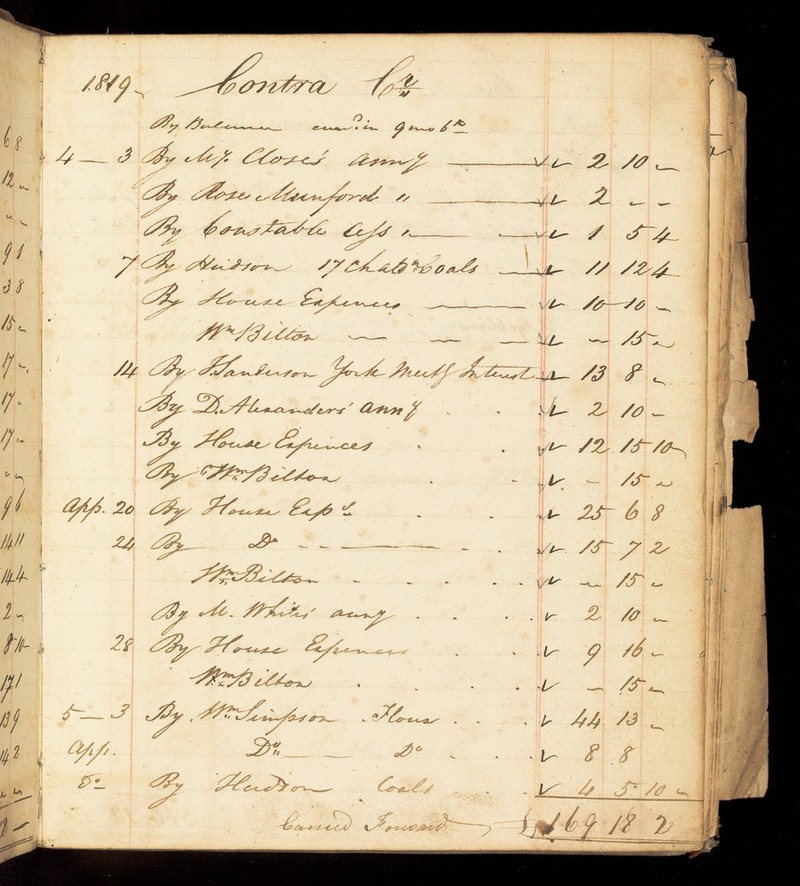 1819 Contra Cr
By Balance
4 — 3 By My. Closes anny — 2 10 „
By Rose Munford " — 2 „ „
By Constable Cess " — 1 5 4
7 By Hudson 17 Chaldn Coals — 11 12 4
By House Expences — 10 10 „
Wm Bilton — — — „ 15 „
14 By Handerson York Meetg Interest 13 8 „
By D. Alexanders anny . . 2 10 „
By House Expinces . . 12 15 10
By Wm Bilton . . „ 15 „
App. 20 By House Exps . . 25 6 8
24 By Do — 15 7 2
Wm Bilton . . . . „ 15 „
By M. Whites anny . . . 2 10 „
28 By House Expences . . 9 16 „
Wm Bilton . . . . „ 15 „
5 — 3 By Wm Simpson Flour . . . 44 13 „
App. Do — Do . . . 8 8
Do By Hudson Coals . . 4 5 10
Carried Forward £ 169 18 2